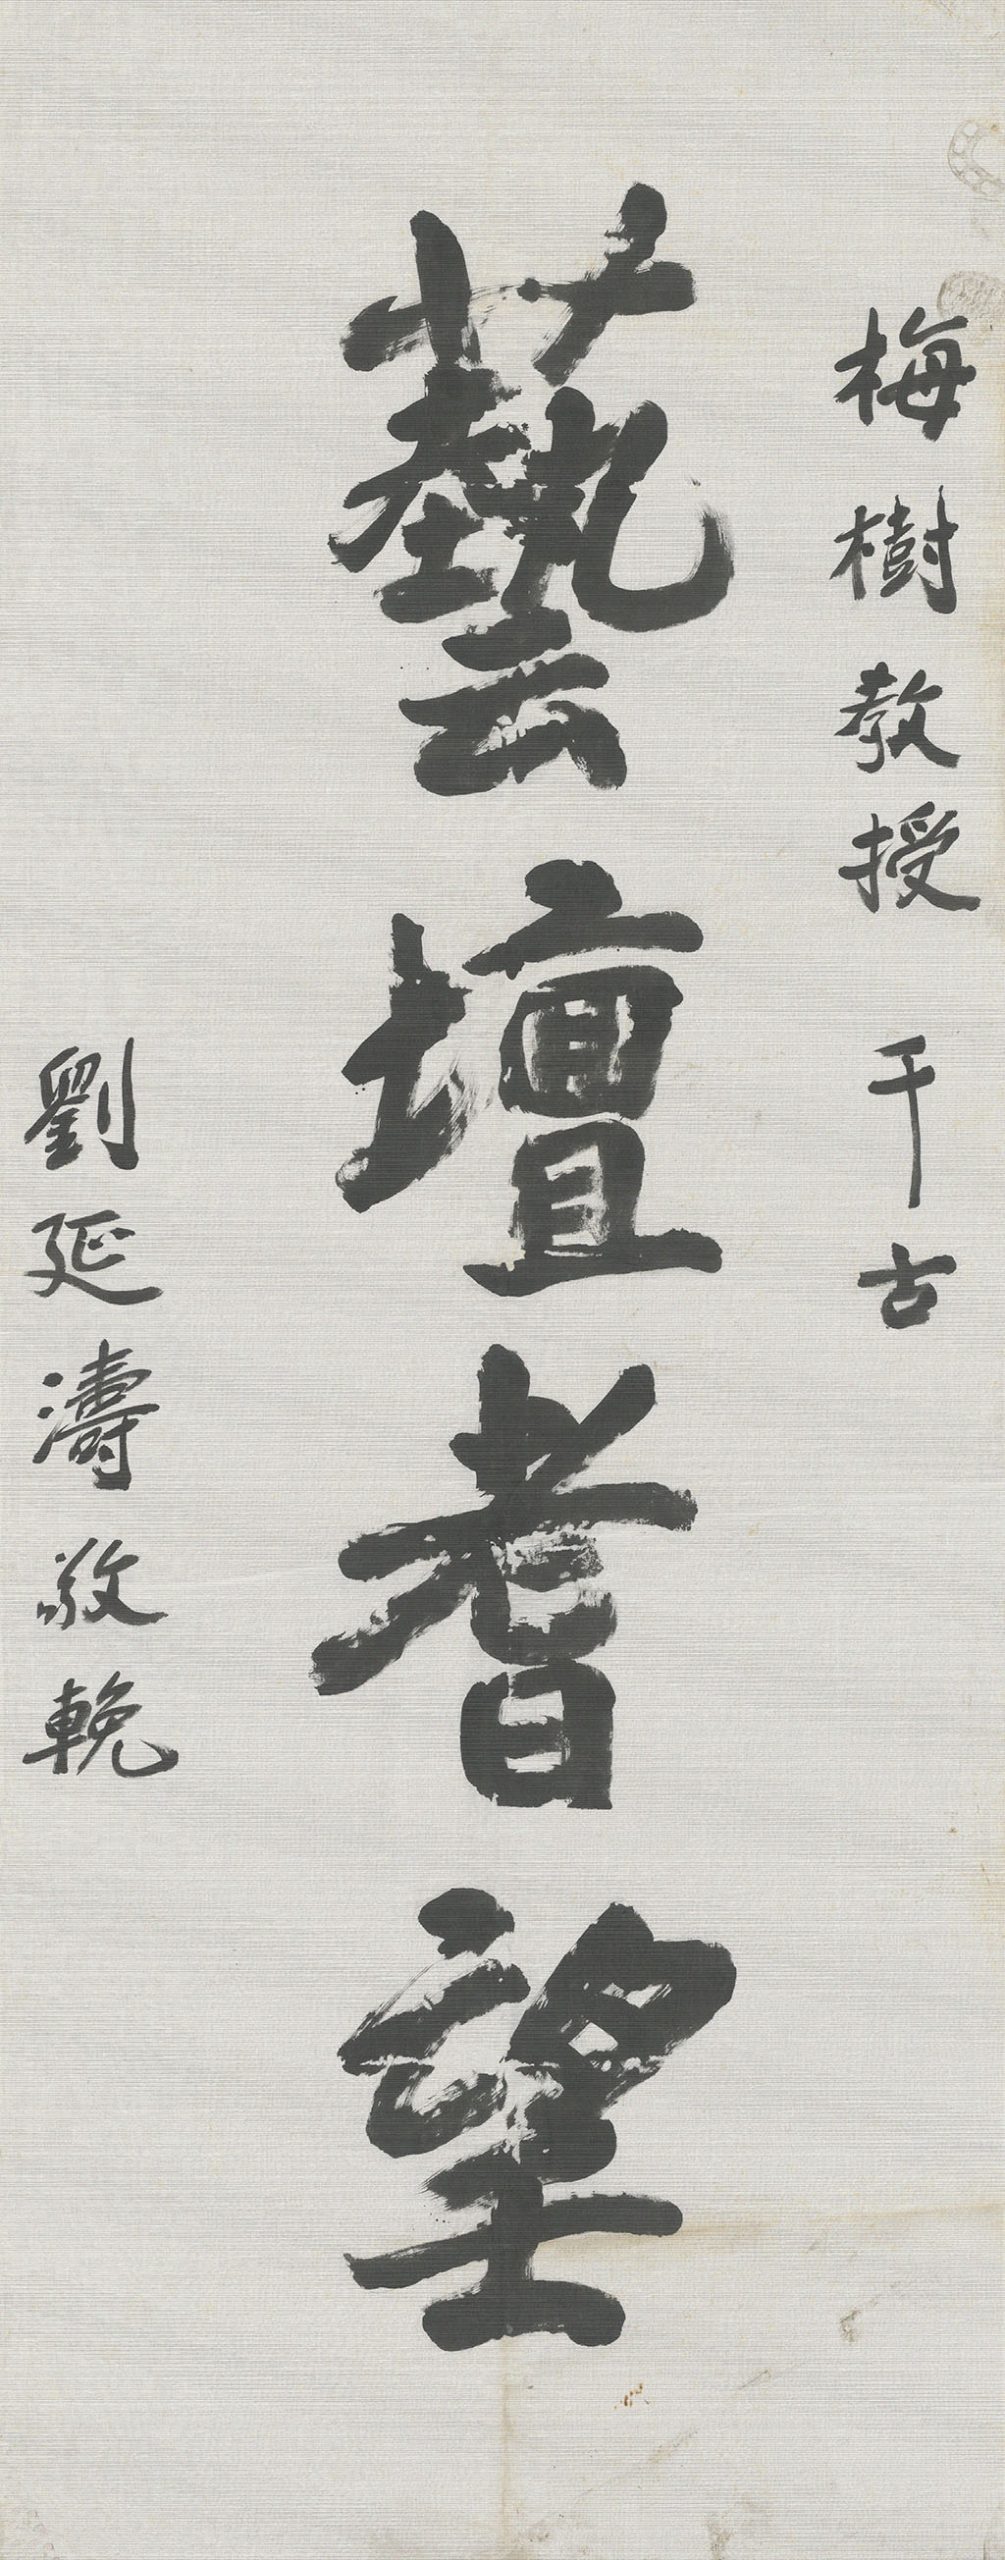 梅樹教授 千古
藝壇耆望
劉延濤敬輓